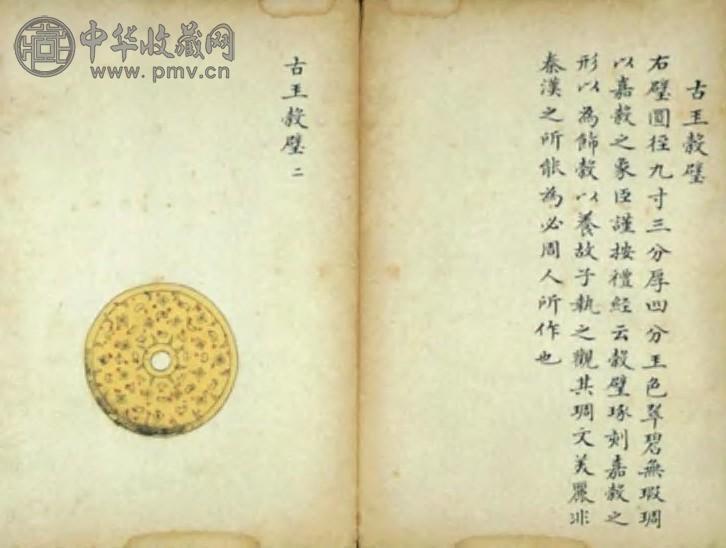 古玉穀璧
右璧圓徑九寸三分厚四分玉色翠碧無瑕琱
以嘉穀之象臣謹按禮經云穀璧琢刻嘉穀之
形以為飾穀以養故子執之觀其琱文美麗非
秦漢之所能為必周人所作也
古玉穀璧二
中华收藏网
www.pmv.cn